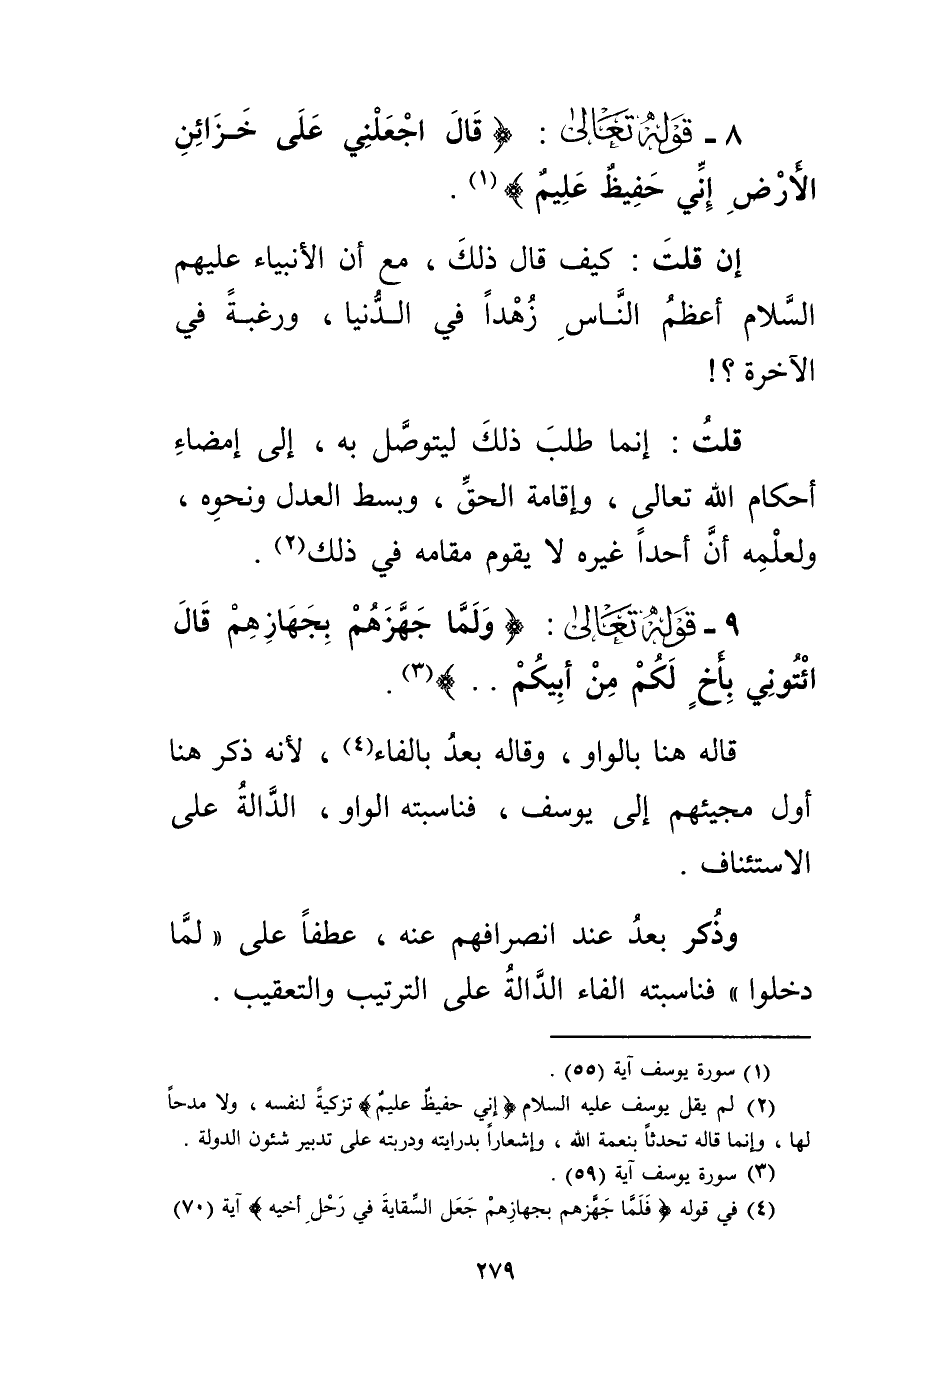 ٨ - قَوْلُهُ تَعَالَىٰ : ﴿ قَالَ اجْعَلْنِي عَلَى خَـزَائِنِ
الأَرْضِ إِنِّي حَفِيظٌ عَلِيمٌ ﴾(١) .
إن قلتَ : كيف قال ذلكَ ، مع أن الأنبياء عليهم
السَّلام أعظمُ النَّـاسِ زُهْداً في الـدُّنيا ، ورغبـةً في
الآخرة ؟!
قلتُ : إنما طلبَ ذلكَ ليتوصَّل به ، إلى إمضاءِ
أحكام الله تعالى ، وإقامة الحقِّ ، وبسط العدل ونحوِه ،
ولعلْمِه أنَّ أحداً غيره لا يقوم مقامه في ذلك(٢) .
٩ - قَوْلُهُ تَعَالَىٰ : ﴿ وَلَمَّا جَهَّزَهُمْ بِجَهَازِهِمْ قَالَ
ائْتُونِي بِأَخٍ لَكُمْ مِنْ أَبِيكُمْ . . ﴾(٣) .
قاله هنا بالواو ، وقاله بعدُ بالفاء(٤) ، لأنه ذكر هنا
أول مجيئهم إلى يوسف ، فناسبته الواو ، الدَّالةُ على
الاستئناف .
وذُكر بعدُ عند انصرافهم عنه ، عطفاً على « لمَّا
دخلوا » فناسبته الفاء الدَّالةُ على الترتيب والتعقيب .
(١) سورة يوسف آية (٥٥) .
(٢) لم يقل يوسف عليه السلام ﴿ إني حفيظٌ عليمٌ ﴾ تزكيةً لنفسه ، ولا مدحاً
لها ، وإنما قاله تحدثاً بنعمة الله ، وإشعاراً بدرايته ودربته على تدبير شئون الدولة .
(٣) سورة يوسف آية (٥٩) .
(٤) في قوله ﴿ فَلَمَّا جَهَّزهم بجهازِهمْ جَعَل السِّقايةَ في رَحْلِ أخيه ﴾ آية (٧٠)
٢٧٩